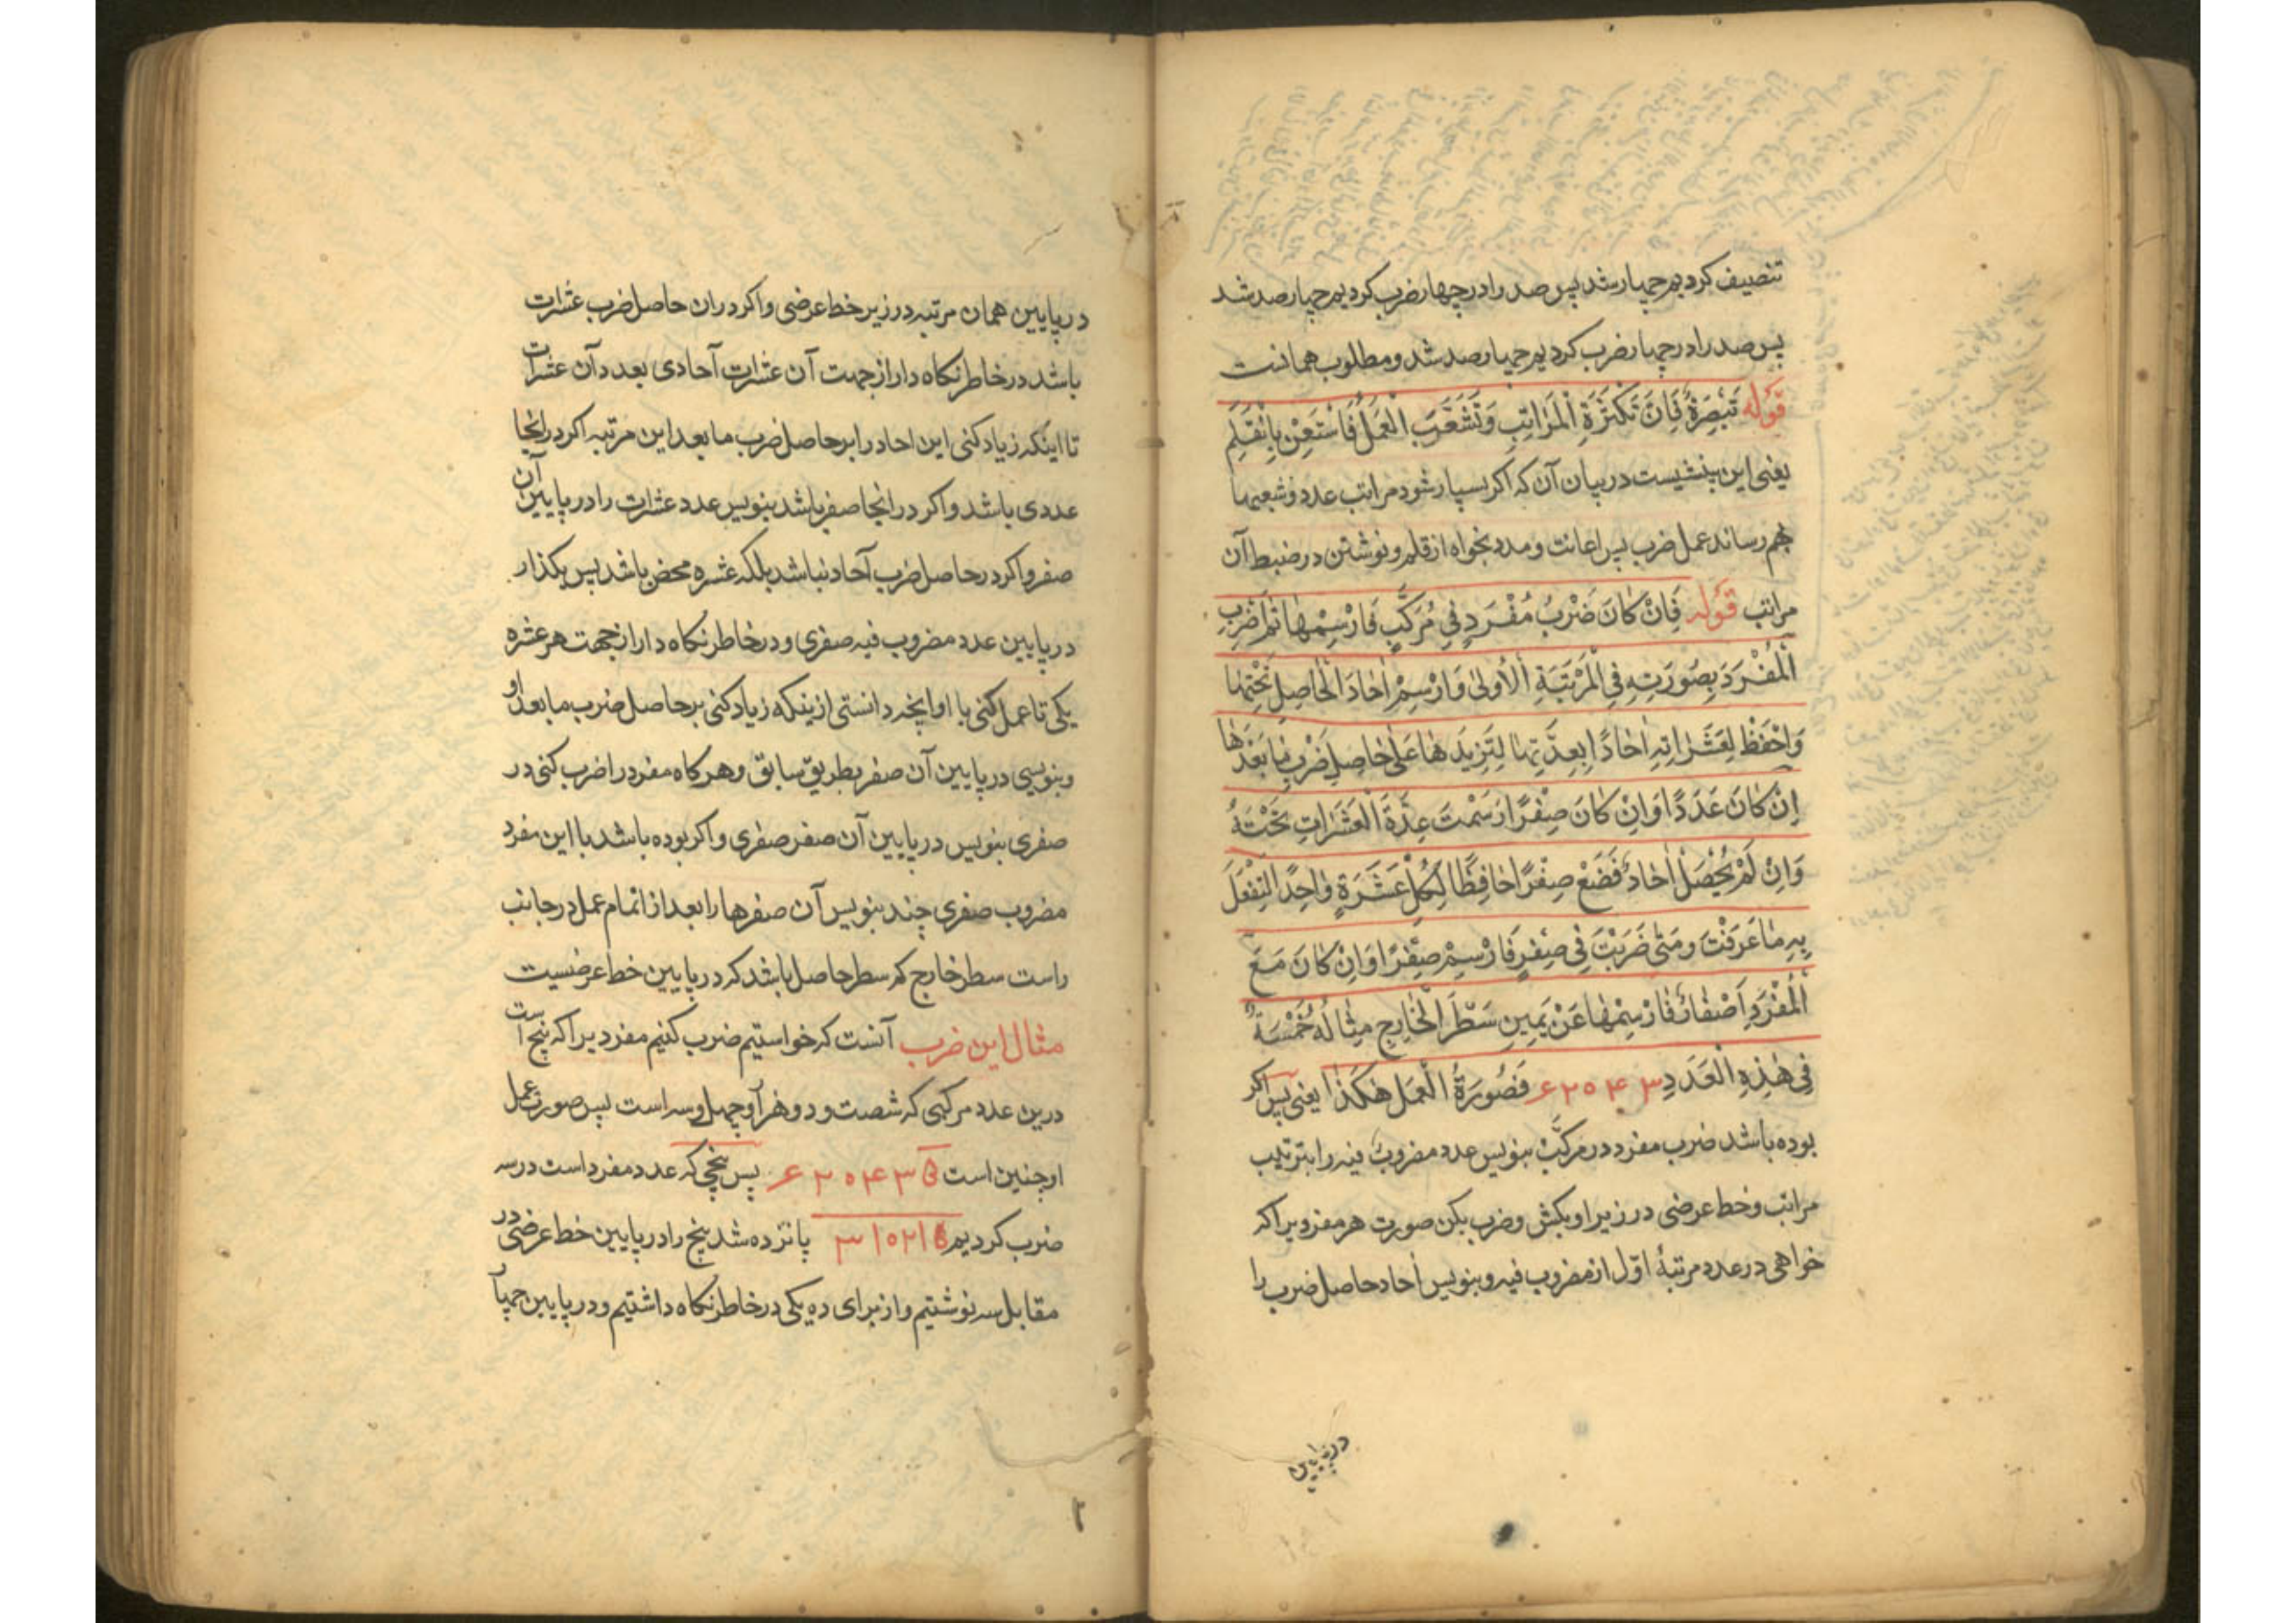 تنصیف کردیم چهار شد پس صد را در چهار ضرب کردیم چهار صد شد
پس صد را در چهار ضرب کردیم چهار صد شد و مطلوب همانست
قوله تَبْصِرَةٌ فَاِنَ تَکَثَّرَةِ الْمَرَاتِبِ وَتَشَعَّبَ الْعَمَلُ فَاسْتَعِنْ بِالْقَلَمِ
یعنی این بینشیست در بیان آن که اکر بسیار شود مراتب عدد و شعبها
بهم رساند عمل ضرب پس اعانت و مدد بخواه از قلم و نوشتن در ضبط آن
مراتب قوله فَاِنْ کَانَ ضَرْبُ مُفْرَدٍ فِی مُرَکَّبٍ فَارْسِمْهَا ثُمَّ اضْرِبِ
الْمُفْرَدَ بِصُورَتِهِ فِی الْمَرْتَبَةِ الْاُولیٰ وَارْسِمْ اٰحَادَ الْحَاصِلِ تَحْتَهَا
وَاحْفَظْ لِعَشَرَاتِهِ اٰحَادًا بِعِدَّتِهَا لِتَزِیدَهَا عَلیٰ حَاصِلِ ضَرْبِ مَا بَعْدَهَا
اِنْ کَانَ عَدَدًا وَاِنْ کَانَ صِفْرًا رَسَمْتَ عِدَّةَ الْعَشَرَاتِ تَحْتَهُ
وَاِنْ لَمْ یَحْصَلْ اٰحَادٌ فَضَعْ صِفْرًا حَافِظًا لِکُلِّ عَشَرَةٍ وَاحِدًا لِتَفْعَلَ
بِهِ مَا عَرَفْتَ وَمَتیٰ ضَرَبْتَ فِی صِفْرٍ فَارْسِمْ صِفْرًا وَاِنْ کَانَ مَعَ
الْمُفْرَدِ اَصْفَارٌ فَارْسِمْهَا عَنْ یَمِینِ سَطْرِ الْخَارِجِ مِثَالُهُ خَمْسَةٌ
فِی هٰذِهِ الْعَدَدِ ۶۲۰۴۳ فَصُورَةُ الْعَمَلِ هٰکَذَا یعنی پس اکر
بوده باشد ضرب مفرد در مرکّب بنویس عدد مضروب فیه را بترتیب
مراتب و خط عرضی در زیر او بکش و ضرب بکن صورت هر مفردیرا که
خواهی در عدد مرتبهٔ اوّل از مضروب فیه و بنویس اٰحاد حاصل ضرب را
در پایین
در پایین همان مرتبه در زیر خط عرضی و اکر در ان حاصل ضرب عشرات
باشد در خاطر نکاه دار از جهت آن عشرات آحادی بعدد آن عشرات
تا اینکه زیاد کنی این احاد را بر حاصل ضرب ما بعد این مرتبه اکر در انجا
عددی باشد و اکر در انجا صفر باشد بنویس عدد عشرات را در پایین آن
صفر و اکر در حاصل ضرب آحاد نباشد بلکه عشره محض باشد پس بکذار
در پایین عدد مضروب فیه صفری و در خاطر نکاه دار از جهت هر عشره
یکی تا عمل کنی با او انچه دانستی از ینکه زیاد کنی بر حاصل ضرب ما بعد او
و بنویسی در پایین آن صفر بطریق سابق و هر کاه مفرد را ضرب کنی در
صفری بنویس در پایین آن صفر صفری و اکر بوده باشد با این مفرد
مضروب صفری چند بنویس آن صفرها را بعد از اتمام عمل در جانب
راست سطر خارج که سطر حاصل باشد که در پایین خط عرضیست
مثال این ضرب آنست که خواستیم ضرب کنیم مفردیرا که پنج است
درین عدد مرکبی که شصت و دو هزار و چهل و سه است پس صورت عمل
او چنین است ۵ ۶۲۰۴۳ پس پنجی که عدد مفرد است در سه
ضرب کردیم ۳۱۰۲۱۵ پانزده شد پنج را در پایین خط عرضی در
مقابل سه نوشتیم و از برای ده یکی در خاطر نکاه داشتیم و در پایین چهار